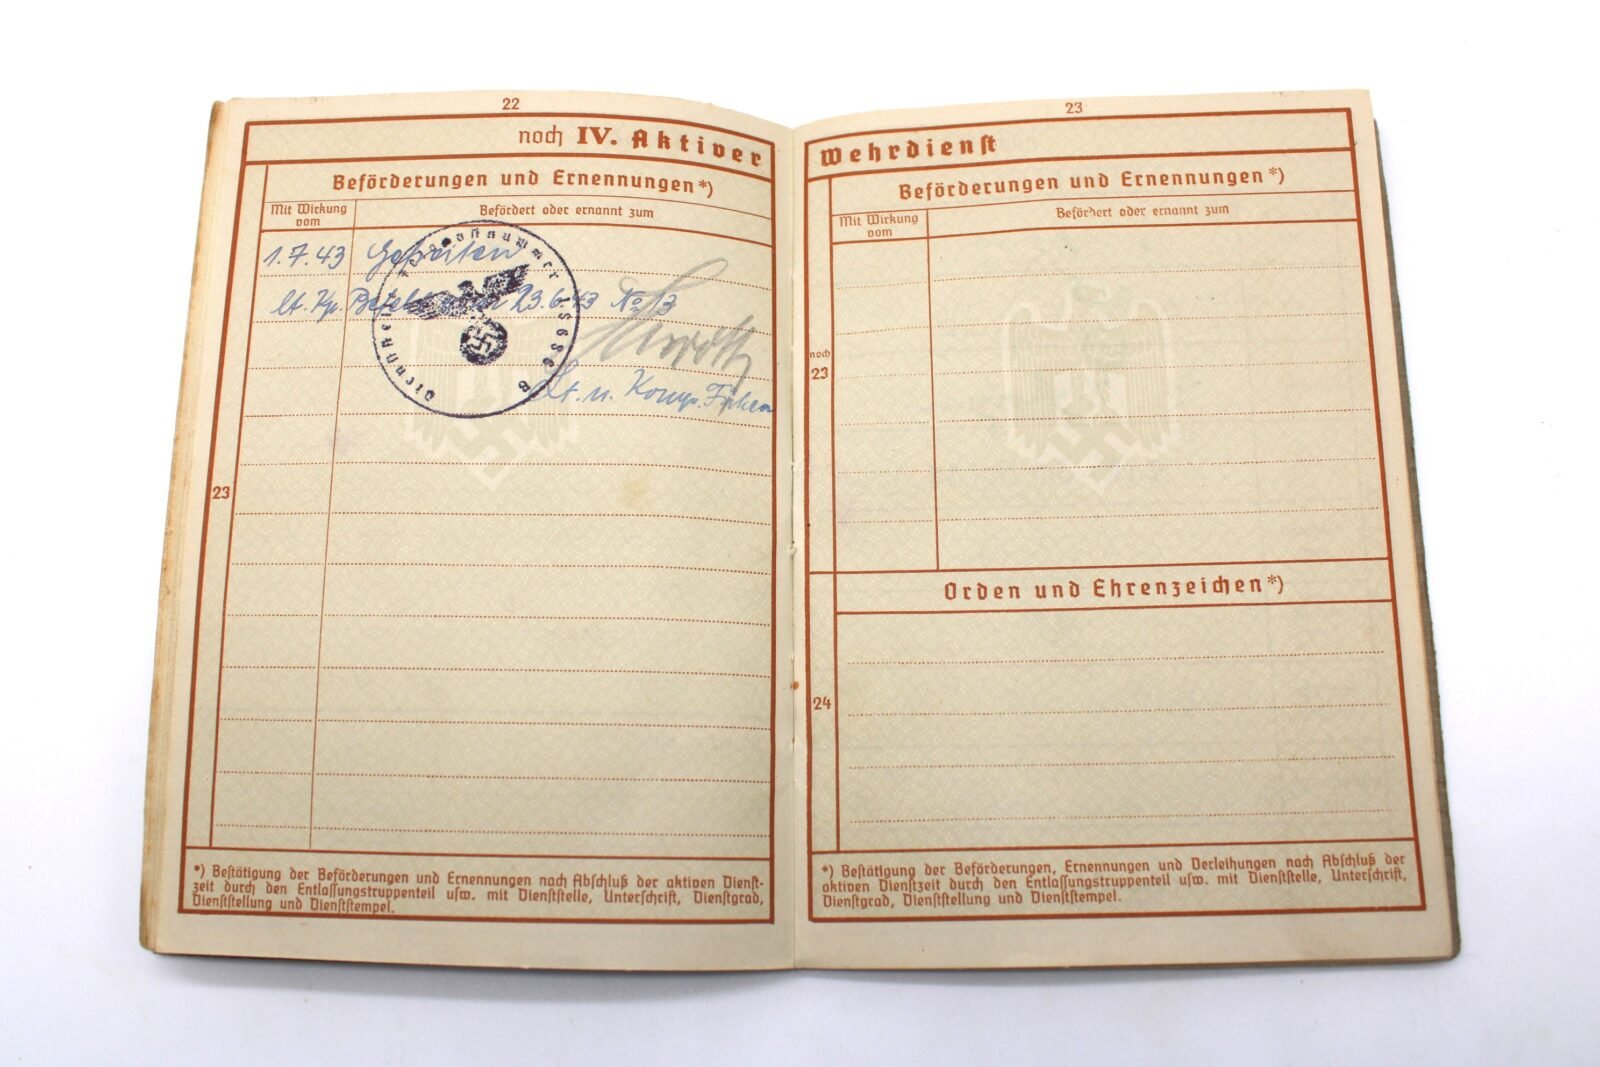 22
noch IV. Aktiver
Beförderungen und Ernennungen*)
Mit Wirkung
vom
Befördert oder ernannt zum
1.7.43 Gefreiten
lt. Kp. Befehl vom 23.6.43 No 13
Lt. u. Komp. Führer
Dienststelle Feldpostnummer
23
*) Bestätigung der Beförderungen und Ernennungen nach Abschluß der aktiven Dienst-
zeit durch den Entlassungstruppenteil usw. mit Dienststelle, Unterschrift, Dienstgrad,
Dienststellung und Dienststempel.
23
Wehrdienst
Beförderungen und Ernennungen*)
Mit Wirkung
vom
Befördert oder ernannt zum
noch
23
Orden und Ehrenzeichen*)
24
*) Bestätigung der Beförderungen, Ernennungen und Verleihungen nach Abschluß der
aktiven Dienstzeit durch den Entlassungstruppenteil usw. mit Dienststelle, Unterschrift,
Dienstgrad, Dienststellung und Dienststempel.